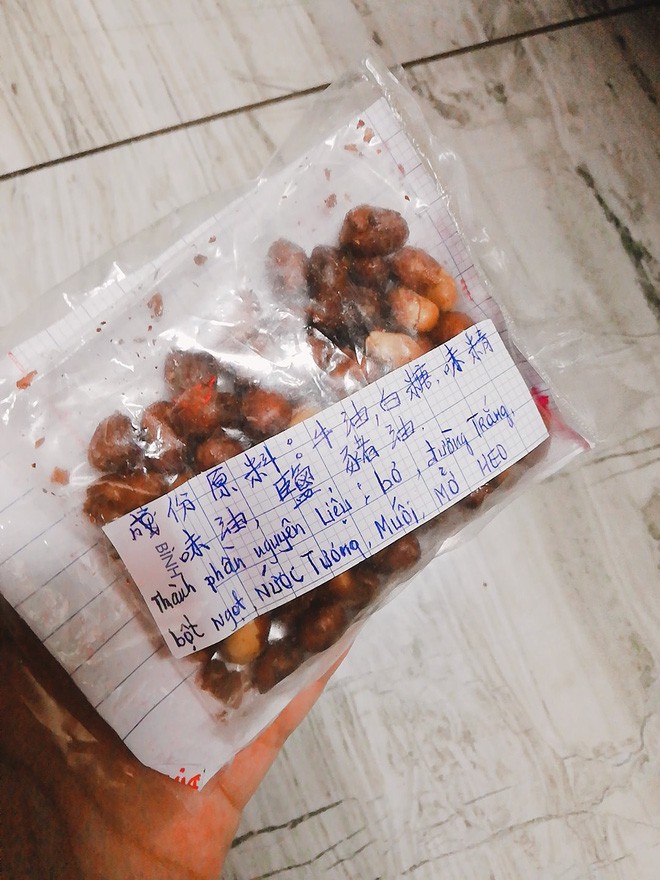 成份原料：牛油,白糖,味精
味油,鹽 豬油.
BÌNH
Thành phần nguyên Liệu: bơ, đường Trắng,
bột ngọt NƯỚC Tương, Muối, Mỡ HEO